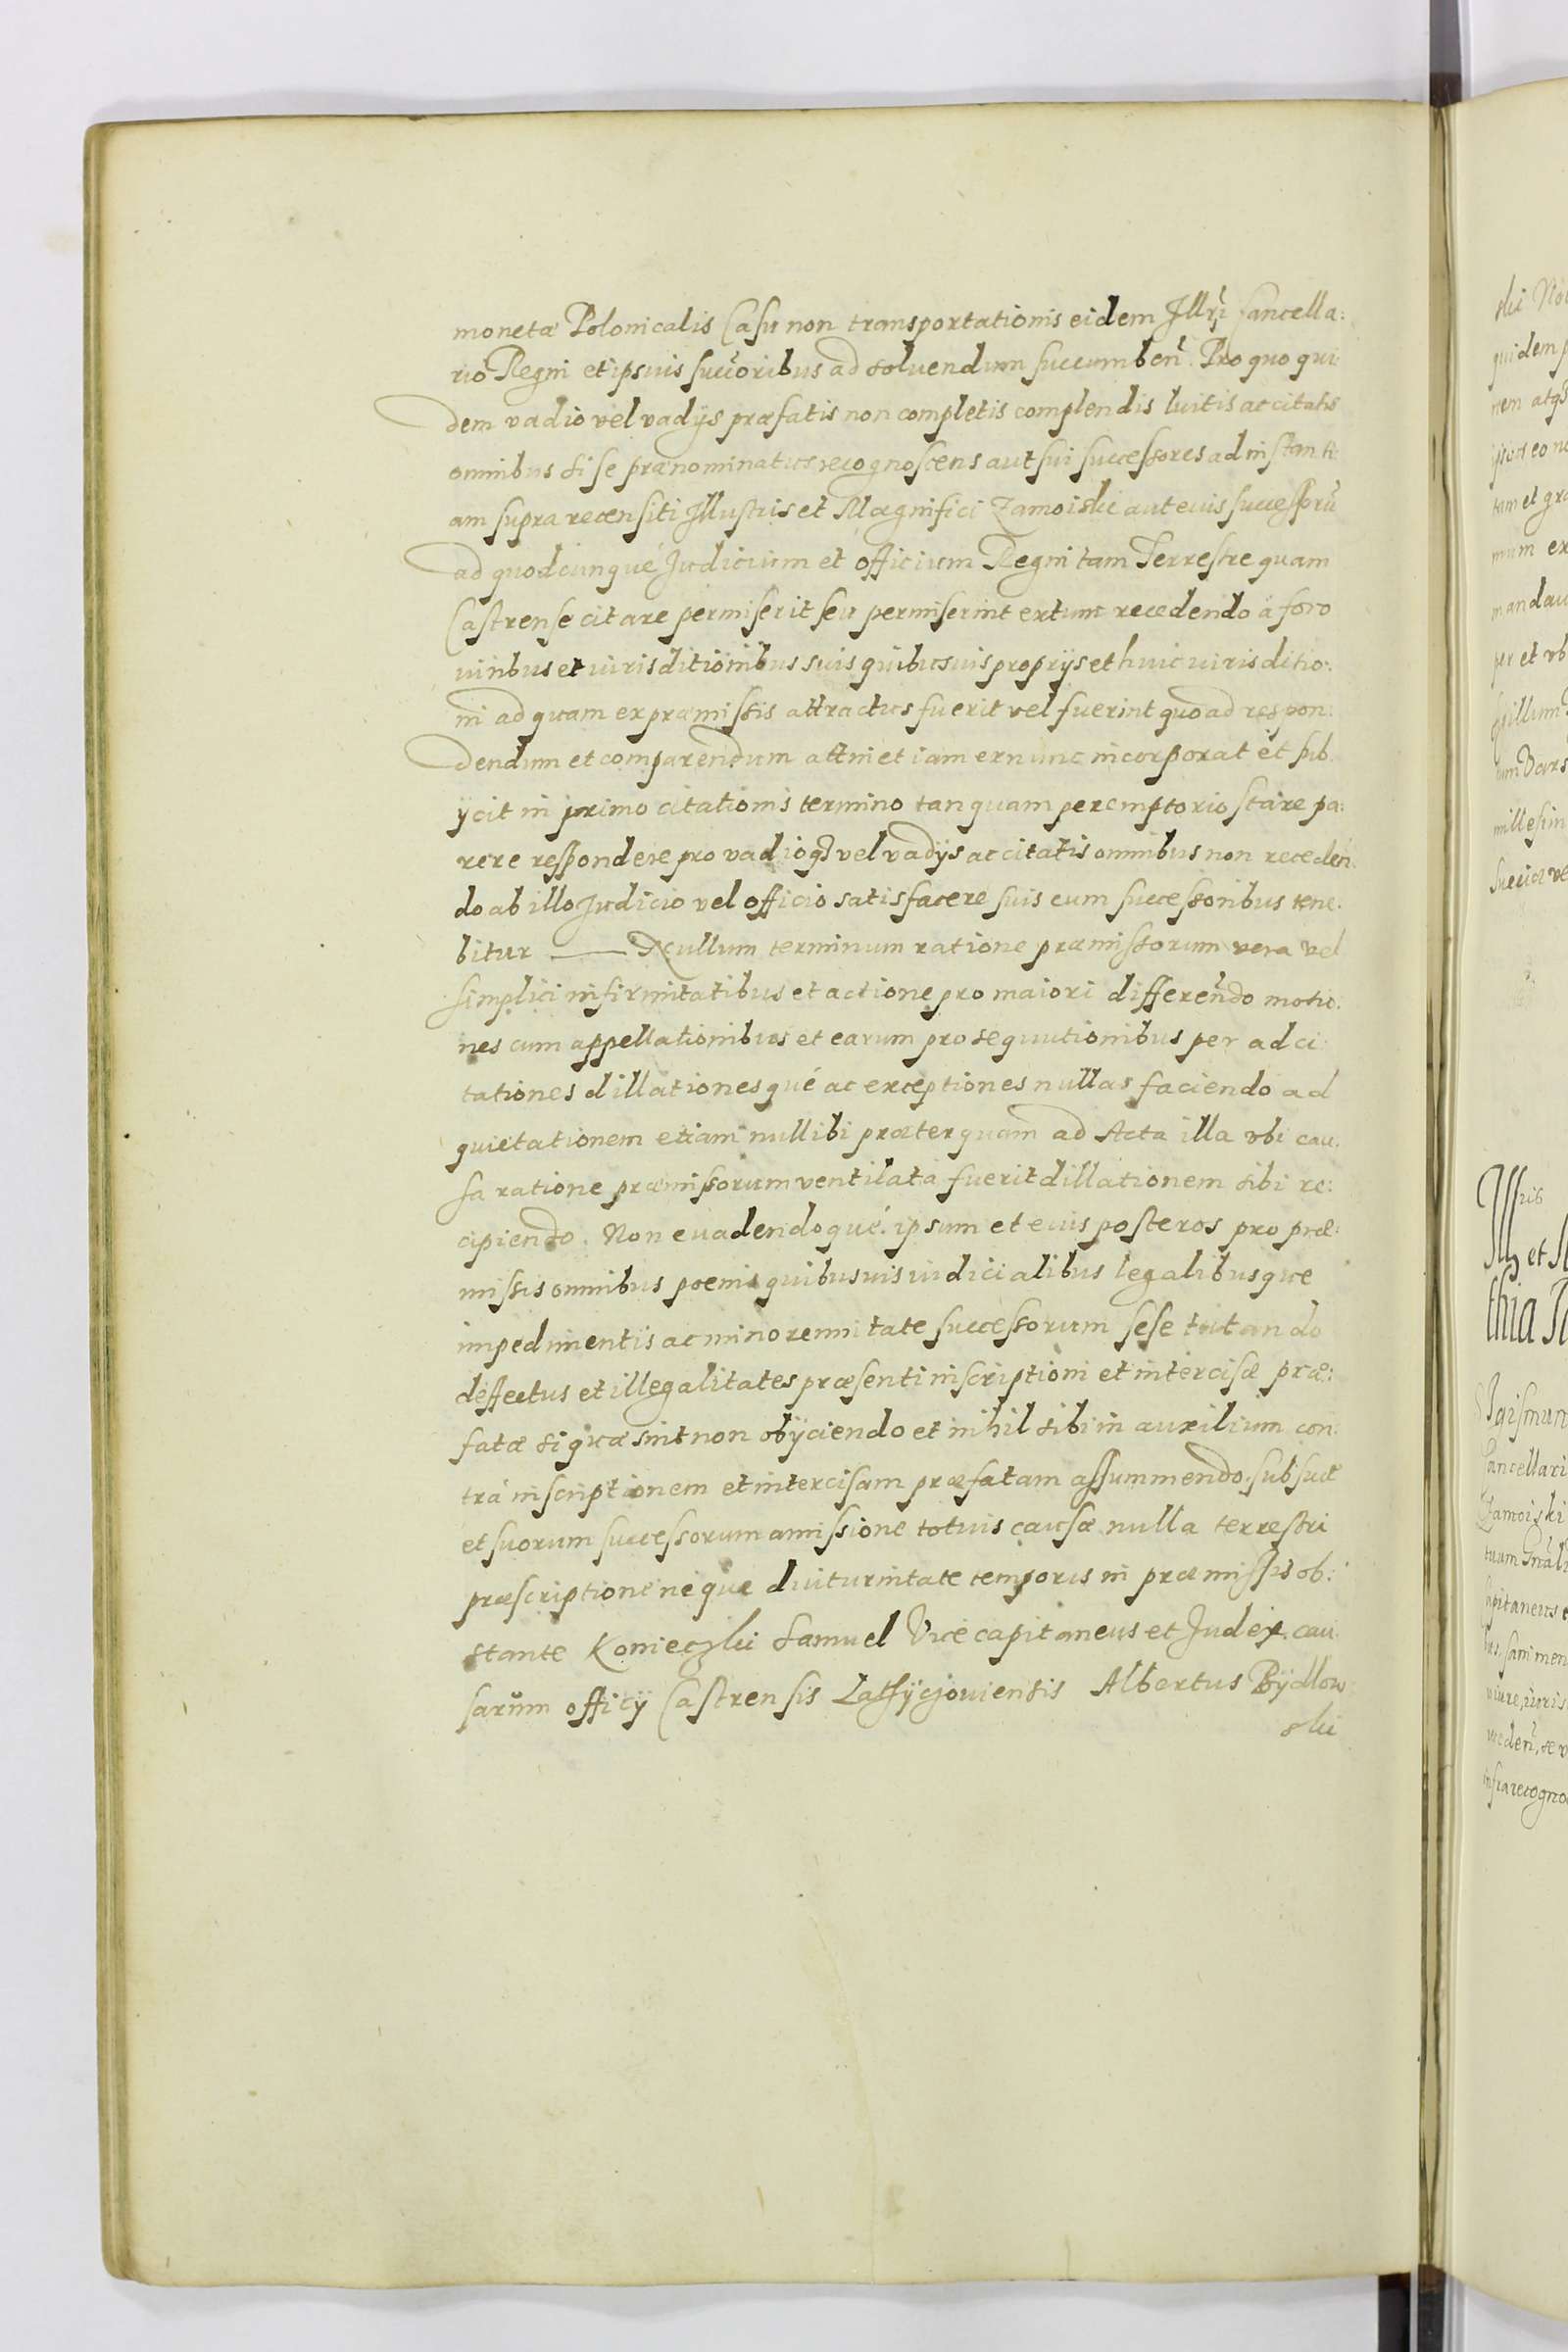 monetæ Polonicalis Casu non transportationis eidem Illri Cancella:
rio Regni et ipsius succoribus ad soluendum succumben. Pro quo qui
dem vadio vel vadijs præfatis non completis complendis luitis accitatis
omnibus si se prænominatus recognoscens aut sui successores ad instanti
am supra recensiti Illustris et Magnifici Zamoiski aut eius successorũ
ad quodcunque Judicium et officium Regni tam Terrestre quam
Castrense citare permiserit seu permiserint extunc recedendo à foro
iuribus et iurisditionibus suis quibusuis proprijs et huic iurisditio:
ni ad quam ex præmissis attractus fuerit vel fuerint quo ad respon:
dendum et comparendum attinet iam ex nunc incorporat et sub
ijcit in primo citationis termino tanquam peremptorio stare pa:
rere respondere pro vadioq3 vel vadijs accitatis omnibus non receden
do ab illo Judicio vel officio satisfacere suis cum successoribus tene:
bitur —— Nullum terminum ratione præmissorum vera vel
simplici infirmitatibus et actione pro maiori differendo motio:
nes cum appellationibus et earum prosequutionibus per ad ci
tationes dillationesqué ac exceptiones nullas faciendo ad
quietationem etiam nullibi præterquam ad Acta illa vbi cau:
sa ratione præmissorum ventilata fuerit dillationem sibi re:
cipiendo. Non euadendoqué ipsum et eius posteros pro præ:
missis omnibus poenis quibusuis iudicialibus legalibusque
impedimentis ac minorennitate successorum sese tutando
deffectus et illegalitates præsenti inscriptioni et intercisæ præ:
fatæ si quæ sint non obijciendo et nihil sibi in auxilium con
trà inscriptionem et intercisam præfatam assummendo, sub sui
et suorum successorum amissione totius causæ nulla terrestri
præscriptione neque diuturnitate temporis in præmissis ob:
stante Konieczki Samuel Vicecapitaneus et Judex cau
sarum officij Castrensis Latyczouiensis Albertus Bydlow
ski